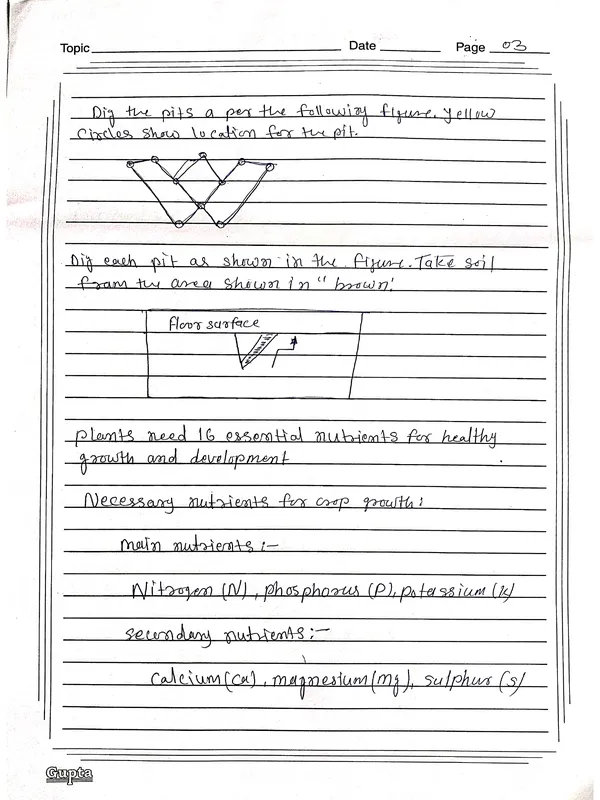 Topic
Date
Page 03
Dig the pits a per the following figure. Yellow
Circles show location for the pit.
Dig each pit as shown in the figure. Take soil
fram the area shown in "brown!
floor surface
plants need 16 essential nutrients for healthy
growth and development
Necessary nutrients for crop growth:
main nutrients :-
Nitrogen (N), phosphorus (P), potassium (K)
secundary nutrients:-
calcium(ca), magnesium(mg), sulphur (s)
Gupta